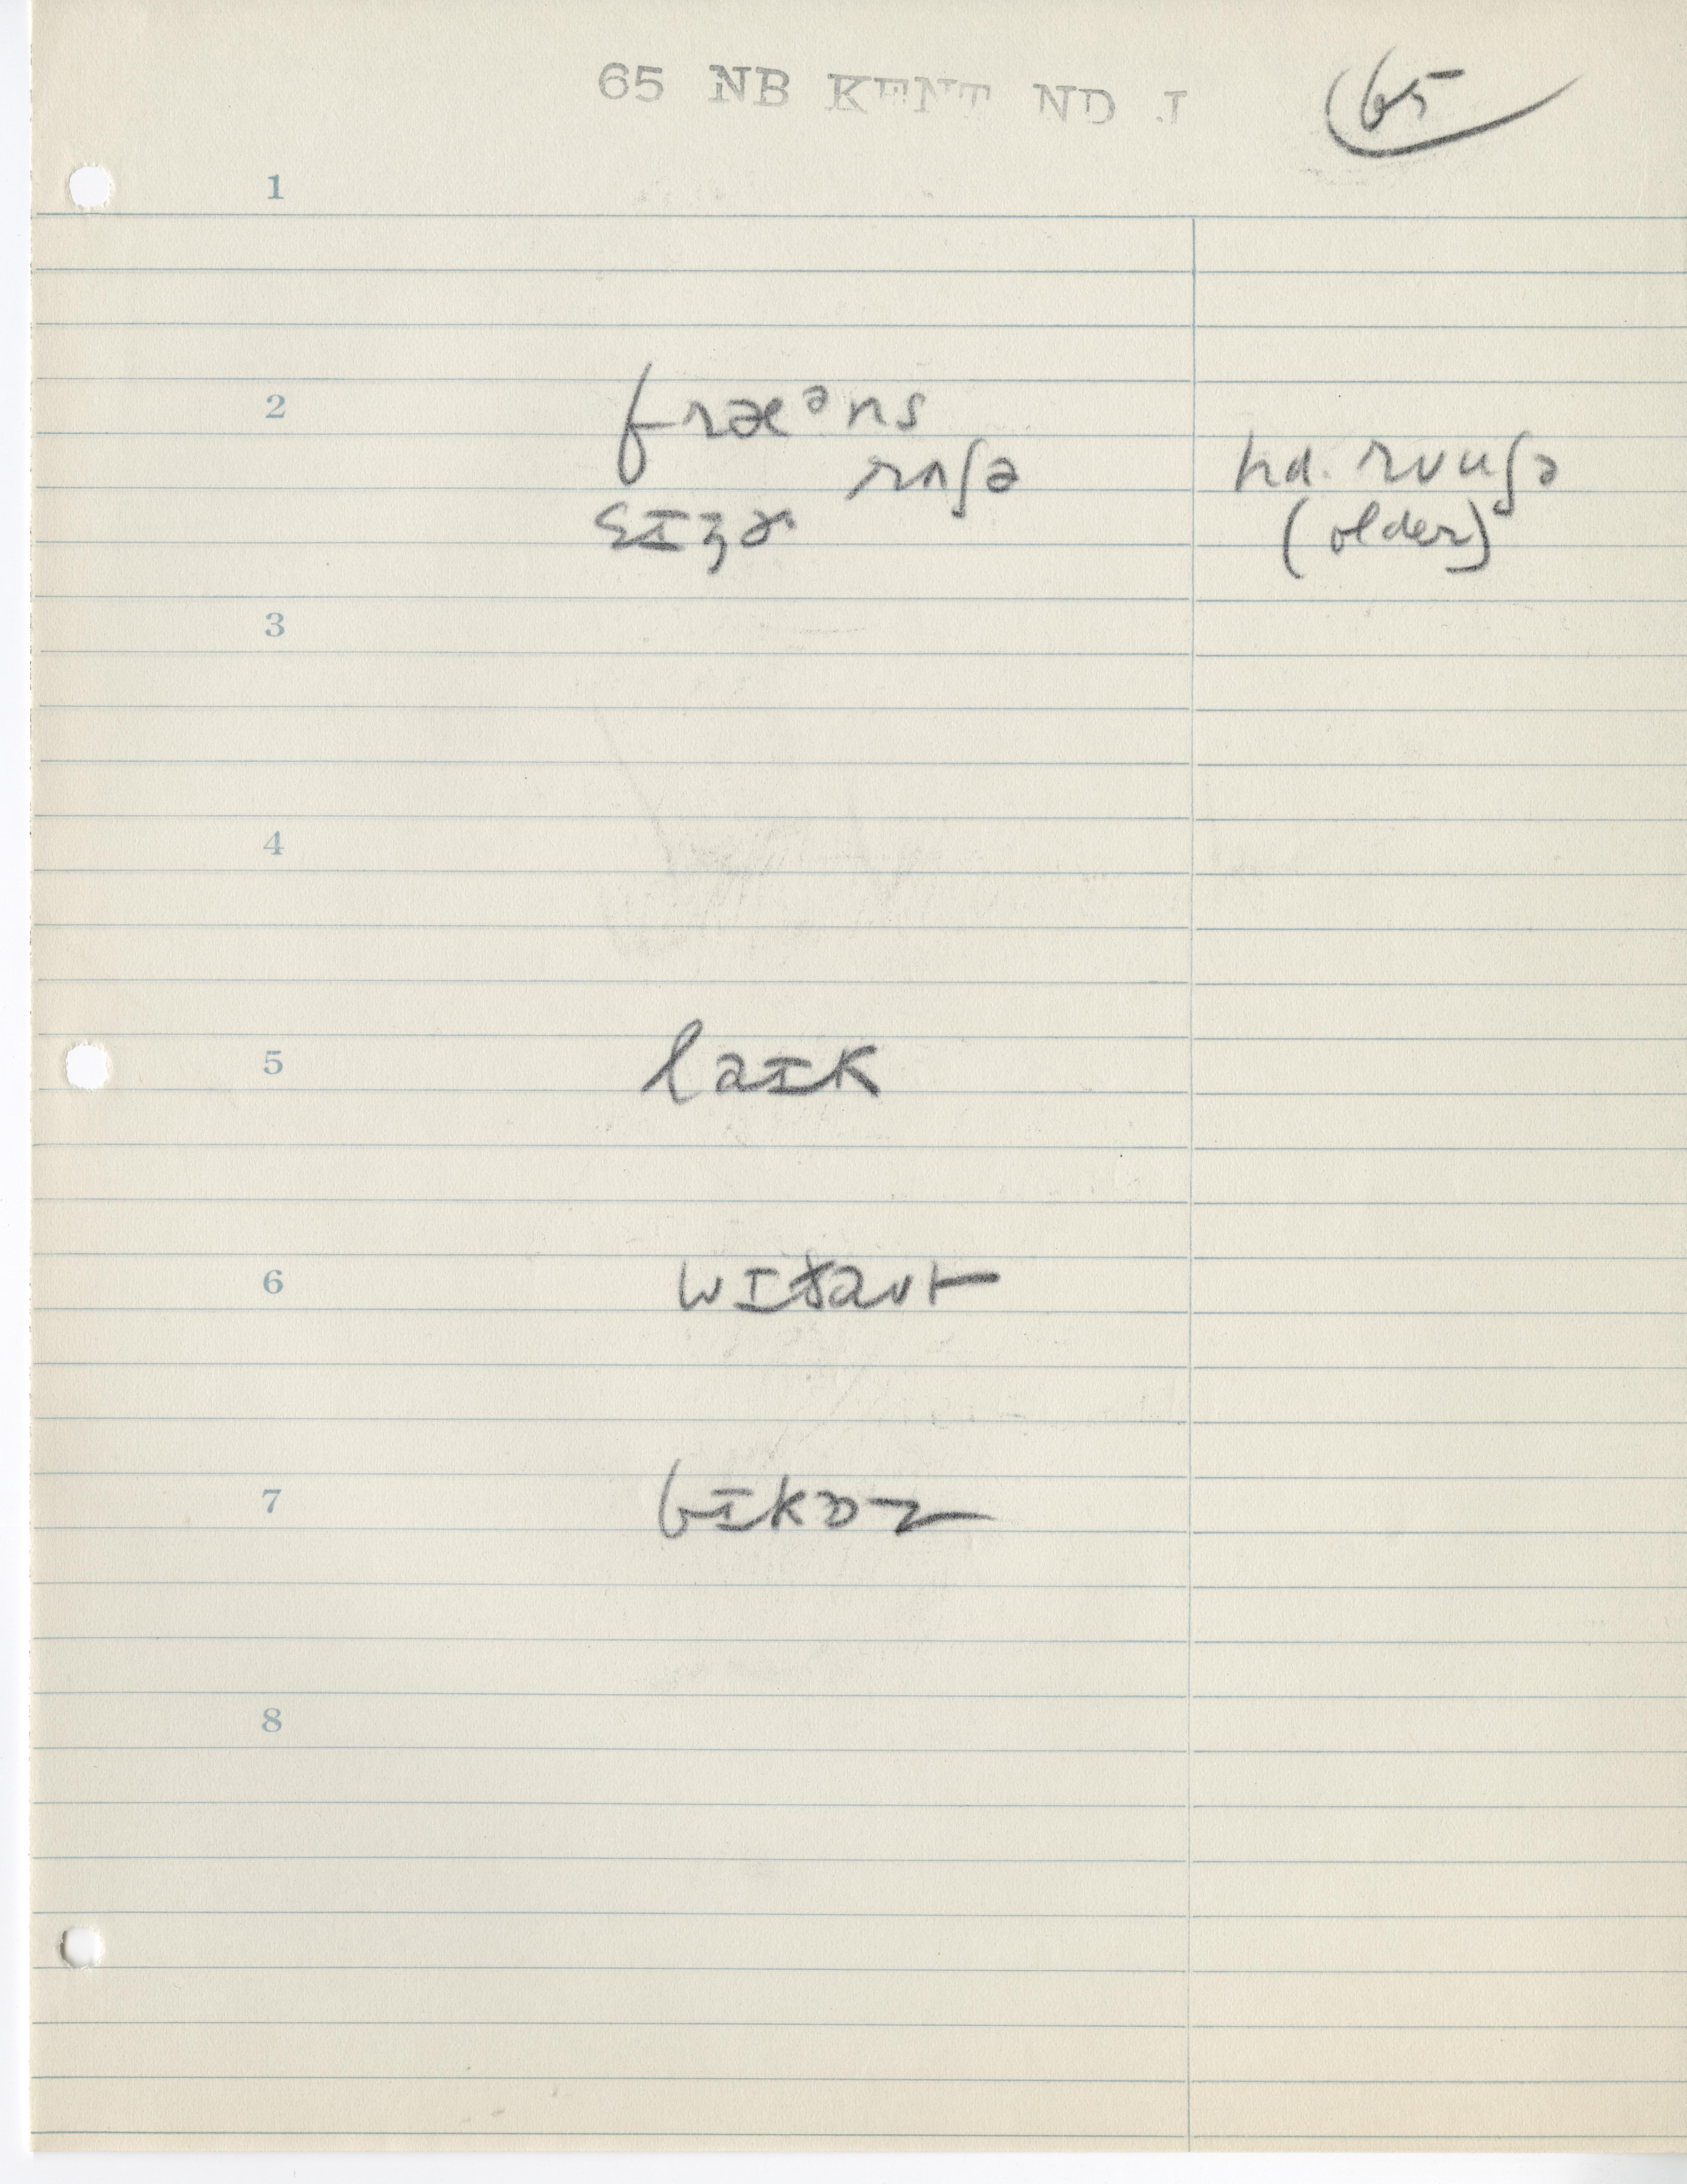 65 NB KENT ND J
65
1
2
fræᵊns
rʌʃə
hd. rʊuʃə
ɛɪʒɚ
(older)
3
4
5
laɪk
6
wɪðaʊt
7
bɪkɒz
8